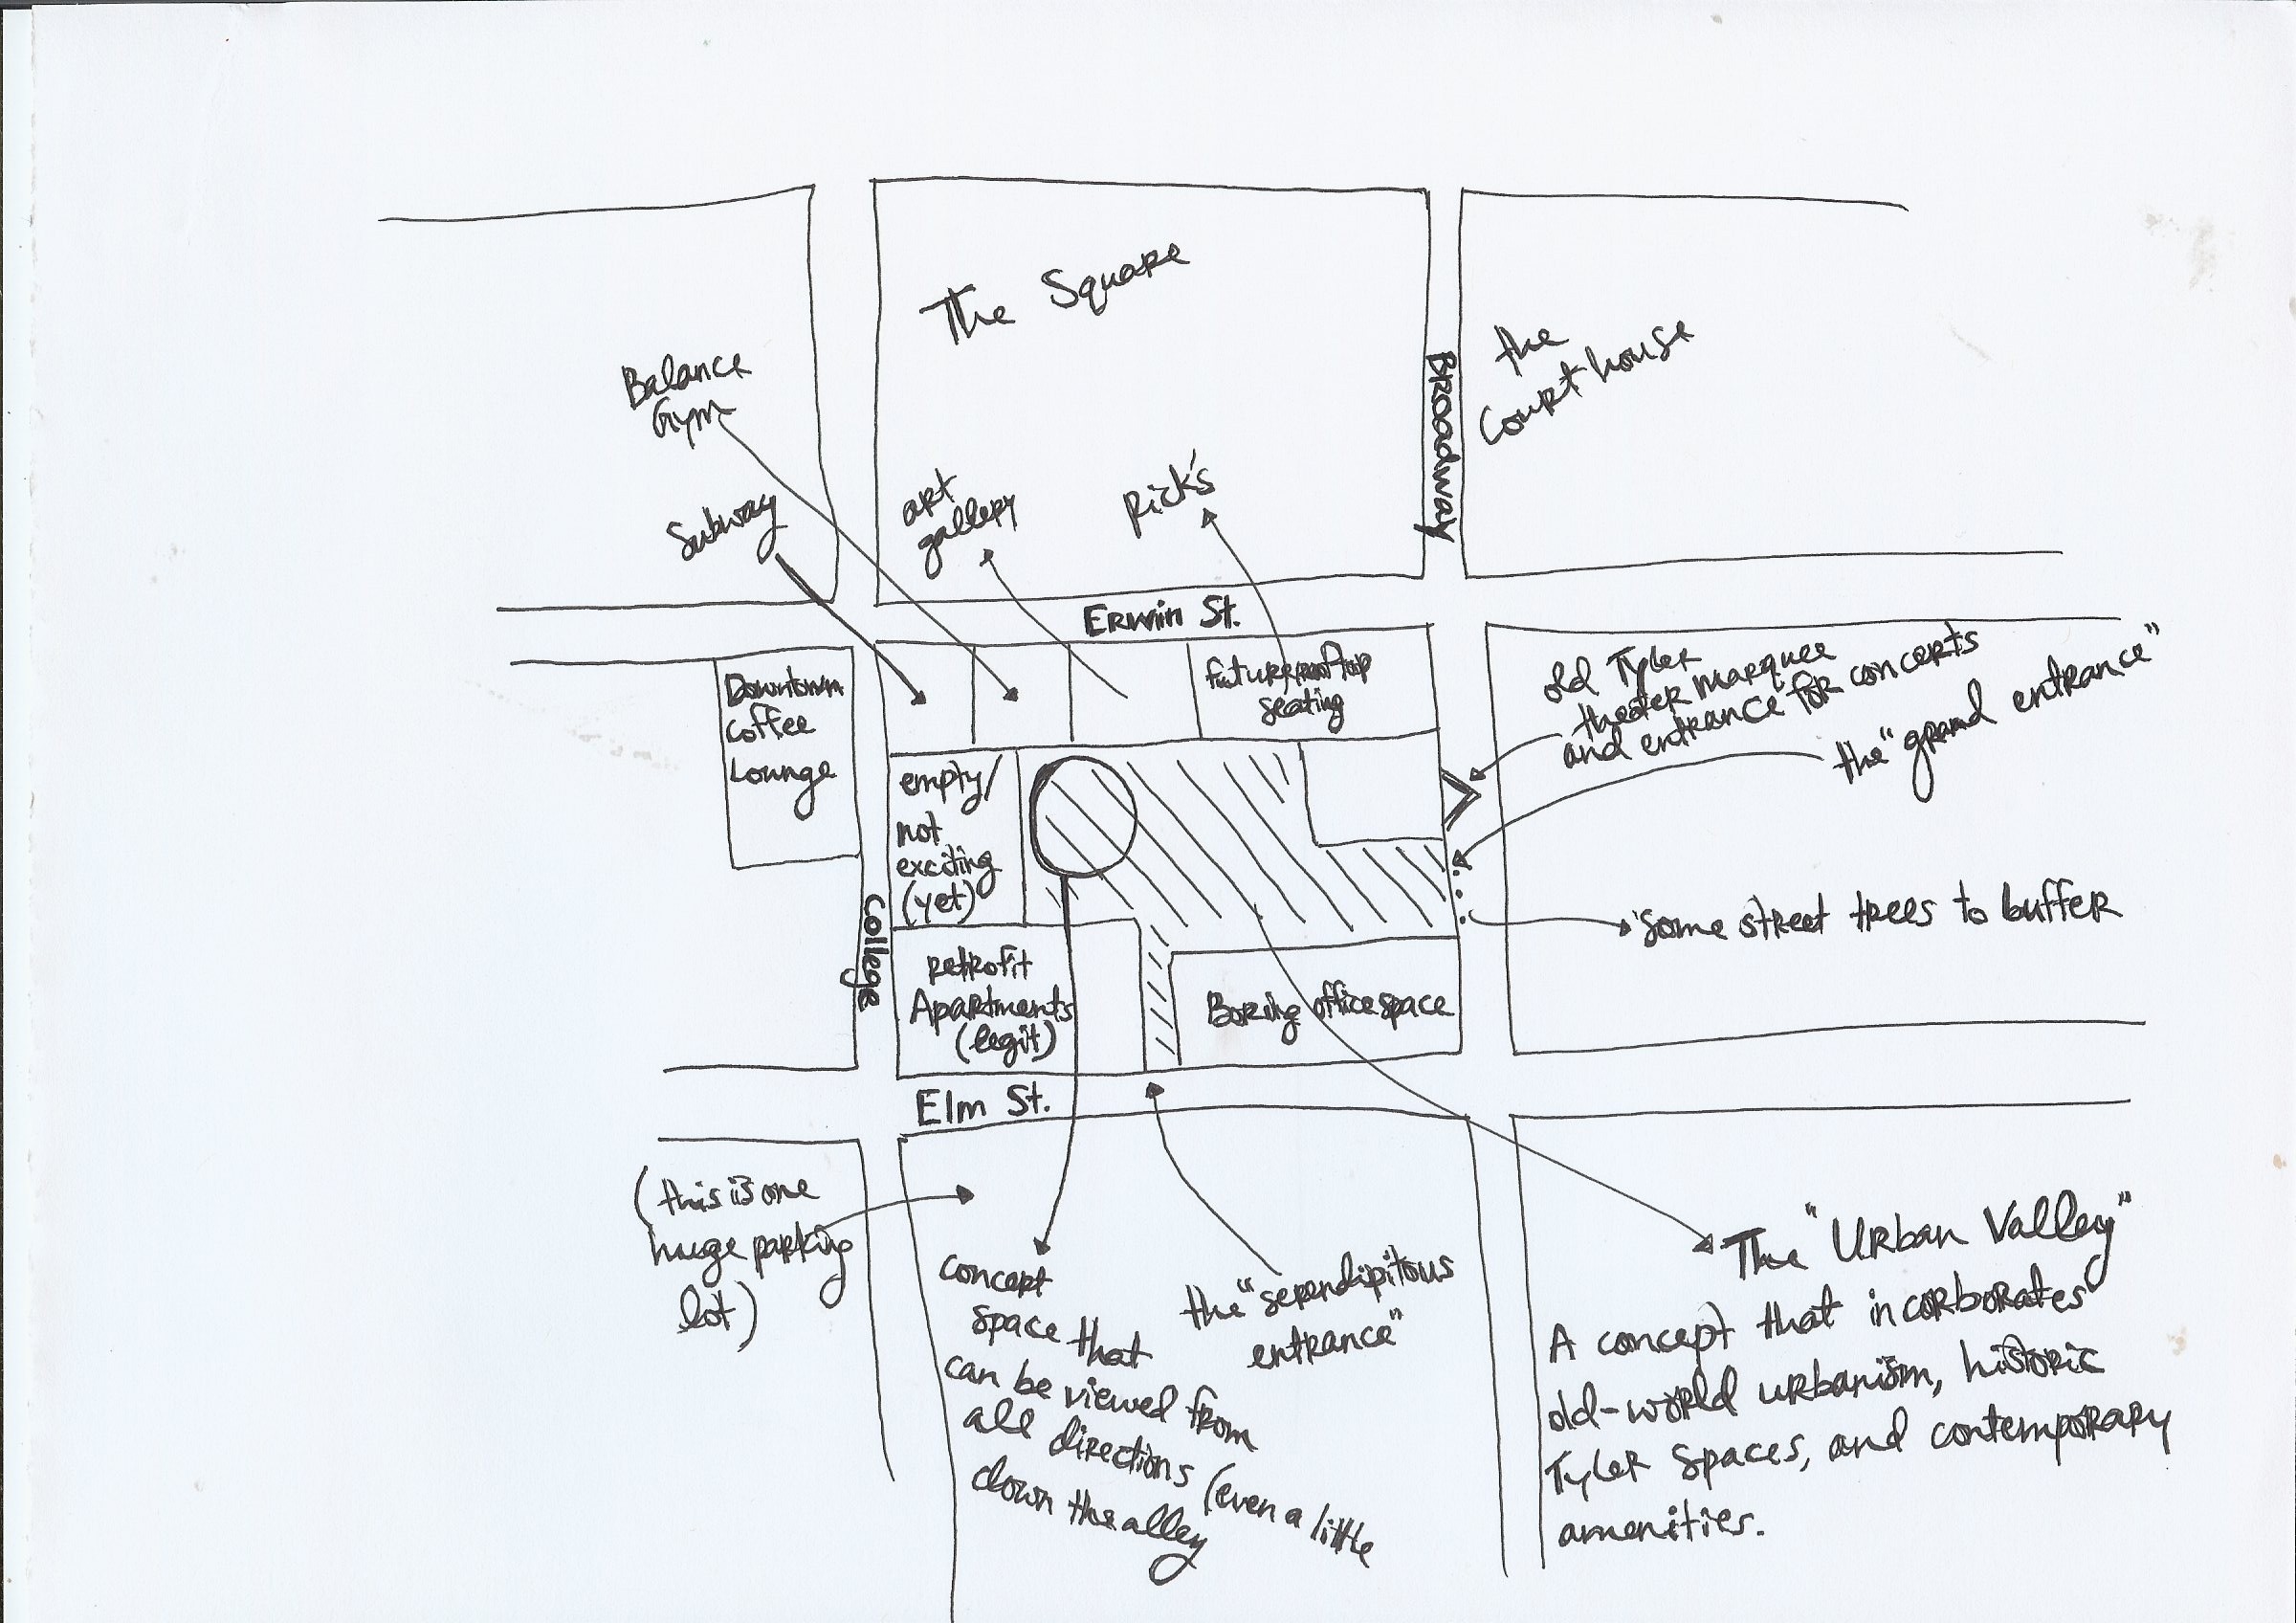 The Square
the
Courthouse
Broadway
Balance
Gym
Subway
art
gallery
Rick's
Erwin St.
Downtown
Coffee
Lounge
future rooftop
seating
old Tyler
theater marquee
and entrance for concerts
the "grand entrance"
empty/
not
exciting
(yet)
College
some street trees to buffer
retrofit
Apartments
(legit)
Boring office space
Elm St.
(this is one
huge parking
lot)
concept
space that
can be viewed from
all directions (even a little
down the alley
the "serendipitous
entrance"
The "Urban Valley"
A concept that incorborates
old-world urbanism, historic
Tyler spaces, and contemporary
amenities.